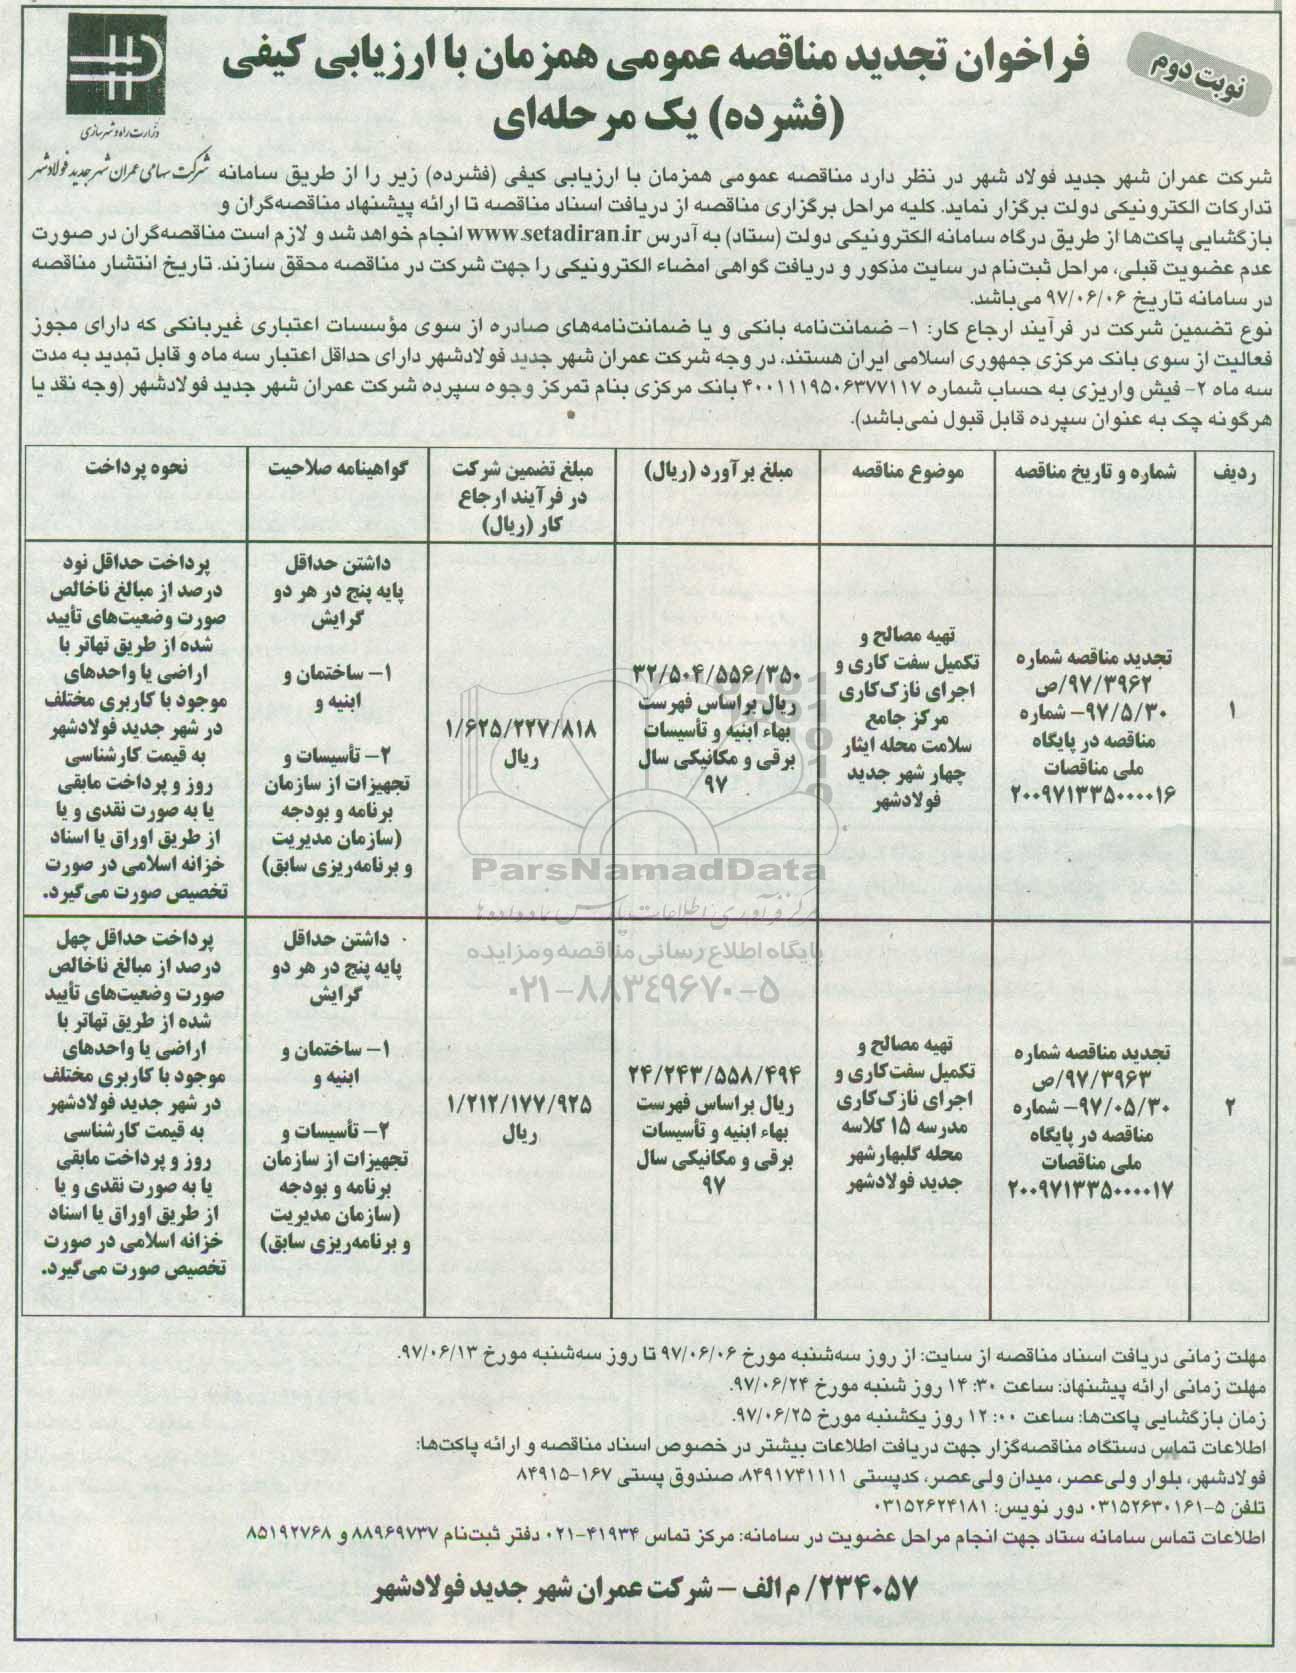 نوبت دوم
فراخوان تجدید مناقصه عمومی همزمان با ارزیابی کیفی
(فشرده) یک مرحله‌ای
وزارت راه و شهرسازی
شرکت سهامی عمران شهر جدید فولادشهر
شرکت عمران شهر جدید فولاد شهر در نظر دارد مناقصه عمومی همزمان با ارزیابی کیفی (فشرده) زیر را از طریق سامانه
تدارکات الکترونیکی دولت برگزار نماید. کلیه مراحل برگزاری مناقصه از دریافت اسناد مناقصه تا ارائه پیشنهاد مناقصه‌گران و
بازگشایی پاکت‌ها از طریق درگاه سامانه الکترونیکی دولت (ستاد) به آدرس www.setadiran.ir انجام خواهد شد و لازم است مناقصه‌گران در صورت
عدم عضویت قبلی، مراحل ثبت‌نام در سایت مذکور و دریافت گواهی امضاء الکترونیکی را جهت شرکت در مناقصه محقق سازند. تاریخ انتشار مناقصه
در سامانه تاریخ ۹۷/۰۶/۰۶ می‌باشد.
نوع تضمین شرکت در فرآیند ارجاع کار: ۱- ضمانت‌نامه بانکی و یا ضمانت‌نامه‌های صادره از سوی مؤسسات اعتباری غیربانکی که دارای مجوز
فعالیت از سوی بانک مرکزی جمهوری اسلامی ایران هستند، در وجه شرکت عمران شهر جدید فولادشهر دارای حداقل اعتبار سه ماه و قابل تمدید به مدت
سه ماه ۲- فیش واریزی به حساب شماره ۴۰۰۱۱۱۹۵۰۶۳۷۷۱۱۷ بانک مرکزی بنام تمرکز وجوه سپرده شرکت عمران شهر جدید فولادشهر (وجه نقد یا
هرگونه چک به عنوان سپرده قابل قبول نمی‌باشد).
ردیف
شماره و تاریخ مناقصه
موضوع مناقصه
مبلغ برآورد (ریال)
مبلغ تضمین شرکت
در فرآیند ارجاع
کار (ریال)
گواهینامه صلاحیت
نحوه پرداخت
۱
تجدید مناقصه شماره
۹۷/۳۹۶۲/ص
۹۷/۵/۳۰- شماره
مناقصه در پایگاه
ملی مناقصات
۲۰۰۹۷۱۳۳۵۰۰۰۰۱۶
تهیه مصالح و
تکمیل سفت کاری و
اجرای نازک‌کاری
مرکز جامع
سلامت محله ایثار
چهار شهر جدید
فولادشهر
۳۲/۵۰۴/۵۵۶/۳۵۰
ریال براساس فهرست
بهاء ابنیه و تأسیسات
برقی و مکانیکی سال
۹۷
۱/۶۲۵/۲۲۷/۸۱۸
ریال
داشتن حداقل
پایه پنج در هر دو
گرایش
۱- ساختمان و
ابنیه و
۲- تأسیسات و
تجهیزات از سازمان
برنامه و بودجه
(سازمان مدیریت
و برنامه‌ریزی سابق)
پرداخت حداقل نود
درصد از مبالغ ناخالص
صورت وضعیت‌های تأیید
شده از طریق تهاتر با
اراضی یا واحدهای
موجود با کاربری مختلف
در شهر جدید فولادشهر
به قیمت کارشناسی
روز و پرداخت مابقی
یا به صورت نقدی و یا
از طریق اوراق یا اسناد
خزانه اسلامی در صورت
تخصیص صورت می‌گیرد.
۲
تجدید مناقصه شماره
۹۷/۳۹۶۳/ص
۹۷/۰۵/۳۰- شماره
مناقصه در پایگاه
ملی مناقصات
۲۰۰۹۷۱۳۳۵۰۰۰۰۱۷
تهیه مصالح و
تکمیل سفت‌کاری و
اجرای نازک‌کاری
مدرسه ۱۵ کلاسه
محله گلبهار شهر
جدید فولادشهر
۲۴/۲۴۳/۵۵۸/۴۹۴
ریال براساس فهرست
بهاء ابنیه و تأسیسات
برقی و مکانیکی سال
۹۷
۱/۲۱۲/۱۷۷/۹۲۵
ریال
داشتن حداقل
پایه پنج در هر دو
گرایش
۱- ساختمان و
ابنیه و
۲- تأسیسات و
تجهیزات از سازمان
برنامه و بودجه
(سازمان مدیریت
و برنامه‌ریزی سابق)
پرداخت حداقل چهل
درصد از مبالغ ناخالص
صورت وضعیت‌های تأیید
شده از طریق تهاتر با
اراضی یا واحدهای
موجود با کاربری مختلف
در شهر جدید فولادشهر
به قیمت کارشناسی
روز و پرداخت مابقی
یا به صورت نقدی و یا
از طریق اوراق یا اسناد
خزانه اسلامی در صورت
تخصیص صورت می‌گیرد.
ParsNamadData
مرکز فرآوری اطلاعات پارس نماد داده‌ها
پایگاه اطلاع رسانی مناقصه و مزایده
۰۲۱-۸۸۳۴۹۶۷۰-۵
مهلت زمانی دریافت اسناد مناقصه از سایت: از روز سه‌شنبه مورخ ۹۷/۰۶/۰۶ تا روز سه‌شنبه مورخ ۹۷/۰۶/۱۳.
مهلت زمانی ارائه پیشنهاد: ساعت ۱۴:۳۰ روز شنبه مورخ ۹۷/۰۶/۲۴.
زمان بازگشایی پاکت‌ها: ساعت ۱۲:۰۰ روز یکشنبه مورخ ۹۷/۰۶/۲۵.
اطلاعات تماس دستگاه مناقصه‌گزار جهت دریافت اطلاعات بیشتر در خصوص اسناد مناقصه و ارائه پاکت‌ها:
فولادشهر، بلوار ولی‌عصر، میدان ولی‌عصر، کدپستی ۸۴۹۱۷۴۱۱۱۱، صندوق پستی ۱۶۷-۸۴۹۱۵
تلفن ۵-۰۳۱۵۲۶۳۰۱۶۱ دور نویس: ۰۳۱۵۲۶۲۴۱۸۱
اطلاعات تماس سامانه ستاد جهت انجام مراحل عضویت در سامانه: مرکز تماس ۴۱۹۳۴-۰۲۱ دفتر ثبت‌نام ۸۸۹۶۹۷۳۷ و ۸۵۱۹۲۷۶۸
۲۳۴۰۵۷/ م الف - شرکت عمران شهر جدید فولادشهر